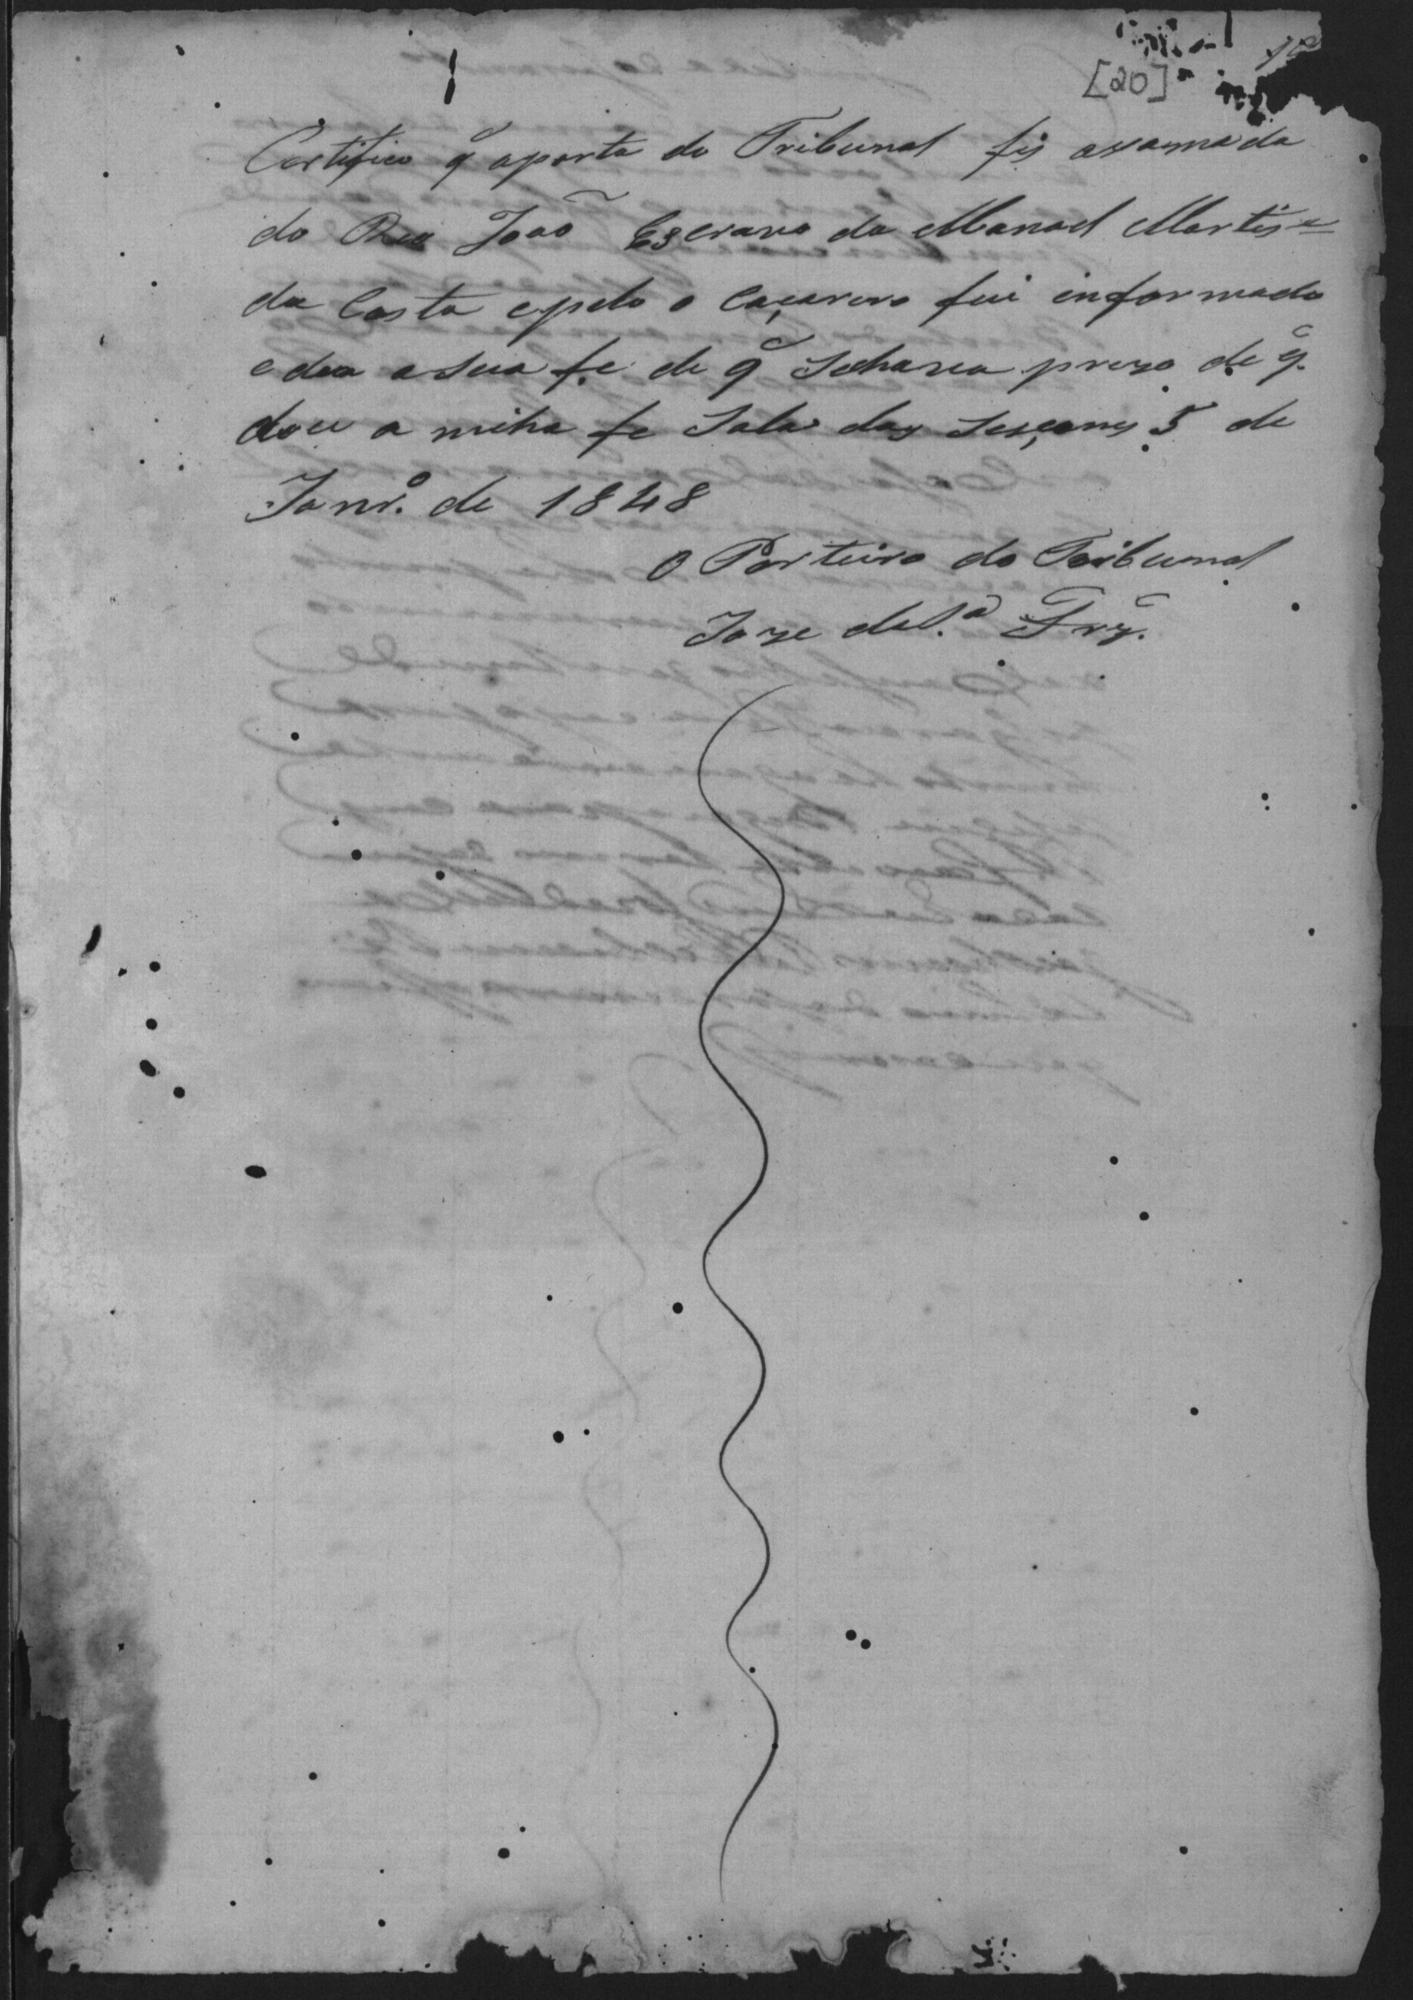 [20]
Certifico q̃ aporta do Tribunal fis axamada
do Reo João Escravo da Manoel Martis
da Costa epelo o Caçarero fui informado
e deu a sua fe de q̃ Sechava prezo de q̃.
dou a miha fe Sala das Sesçones 5 de
Janr.º de 1848
O Porteiro do Tribunal
Joze da S.ª Frz̃.